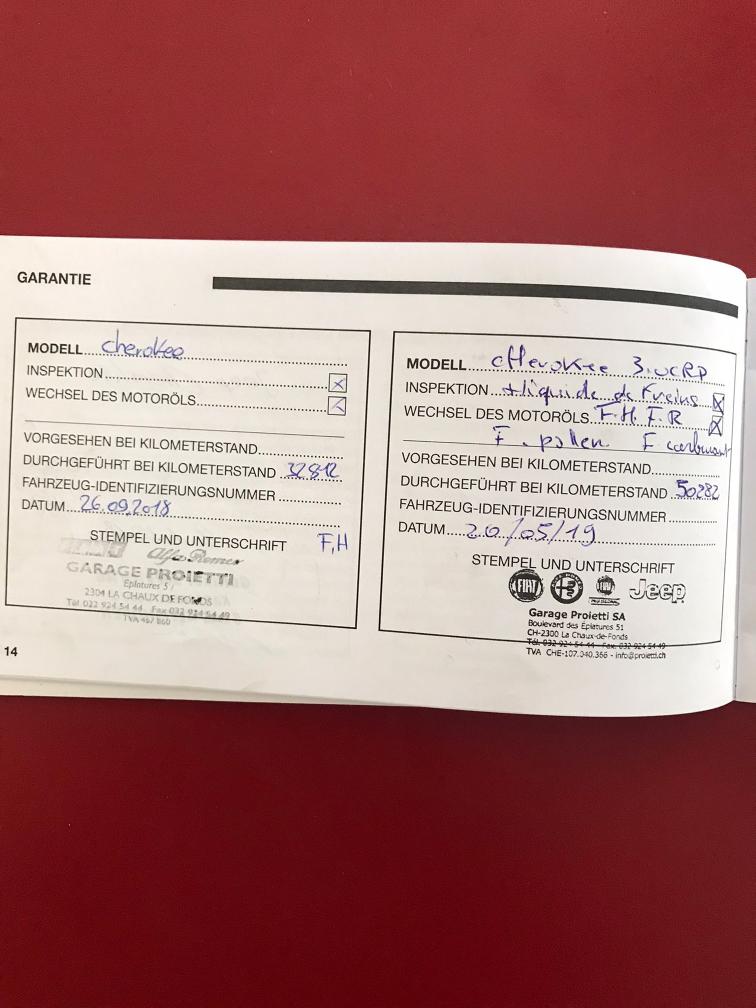 GARANTIE
MODELL cherokee
INSPEKTION
WECHSEL DES MOTORÖLS
VORGESEHEN BEI KILOMETERSTAND
DURCHGEFÜHRT BEI KILOMETERSTAND 32812
FAHRZEUG-IDENTIFIZIERUNGSNUMMER
DATUM 26.09.2018
STEMPEL UND UNTERSCHRIFT F,H
Alfa Romeo
GARAGE PROIETTI
Eplatures 51
2304 LA CHAUX DE FONDS
Tél 032 924 54 44 Fax 032 924 54 49
TVA 467 860
14
MODELL cHerokee 3.0CRD
INSPEKTION +liquide de freins
WECHSEL DES MOTORÖLS F.H. F.R
F. pollen F carburant
VORGESEHEN BEI KILOMETERSTAND
DURCHGEFÜHRT BEI KILOMETERSTAND 50282
FAHRZEUG-IDENTIFIZIERUNGSNUMMER
DATUM 20/05/19
STEMPEL UND UNTERSCHRIFT
FIAT FIAT Jeep
Garage Proietti SA
Boulevard des Eplatures 51
CH-2300 La Chaux-de-Fonds
Tél. 032 924 54 44 Fax. 032 924 54 49
TVA CHE-107.040.366 - info@proietti.ch